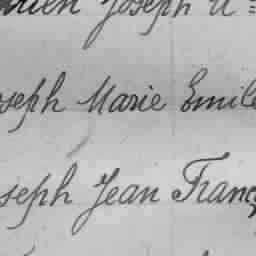 Joseph
oseph Marie Emile
seph Jean Franç